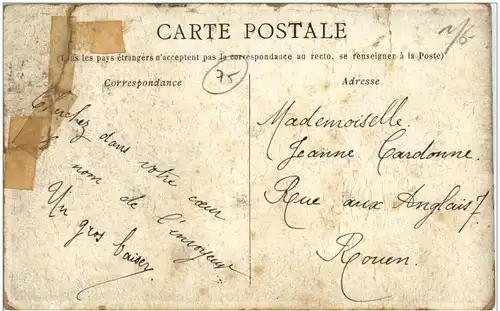 CARTE POSTALE
(Tous les pays étrangers n'acceptent pas la correspondance au recto, se renseigner à la Poste)
Correspondance
Cherchez dans votre cœur
nom de l'envoyeur
Un gros baiser
75
Adresse
Mademoiselle
Jeanne Cardonne
Rue aux Anglais 7.
Rouen.